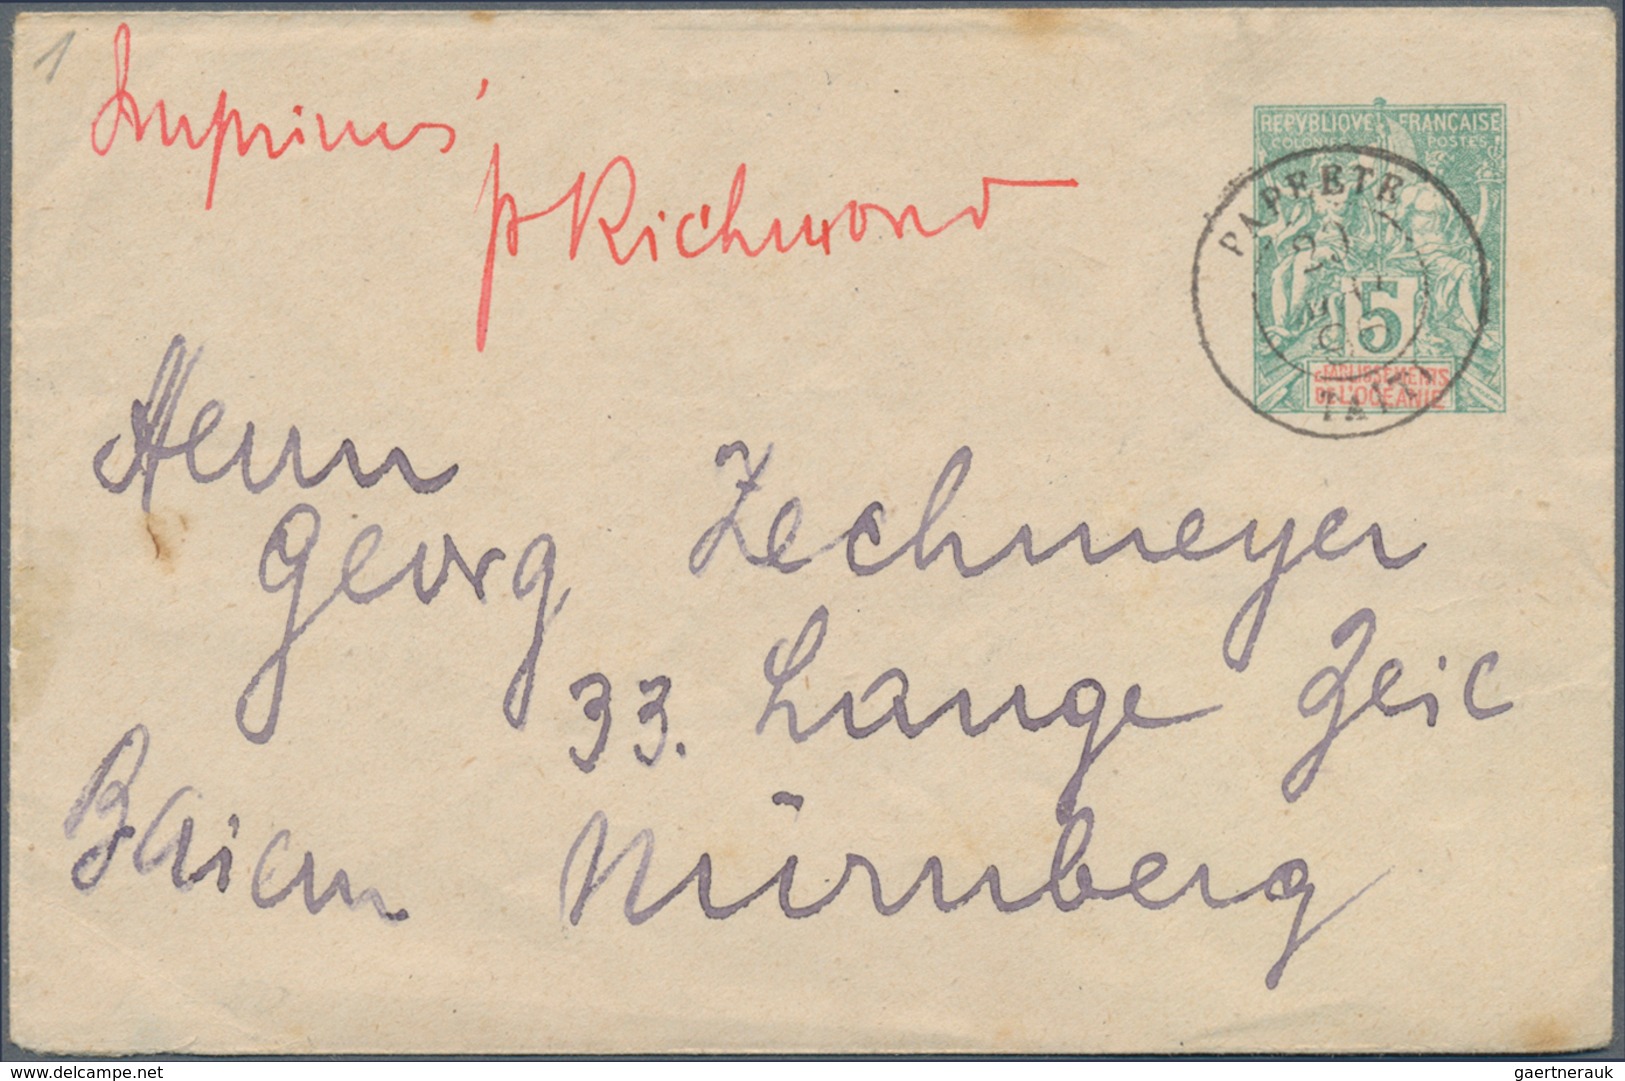 1
Imprimés
p Richmond
REPVBLIQVE FRANÇAISE
COLONIES POSTES
PAPEETE
TAITI
5
ETABLISSEMENTS
DE L'OCÉANIE
Herrn
Georg Zechmeyer
33. Lange Zeile
Baiern Nürnberg
delcampe.net
gaertnerauk